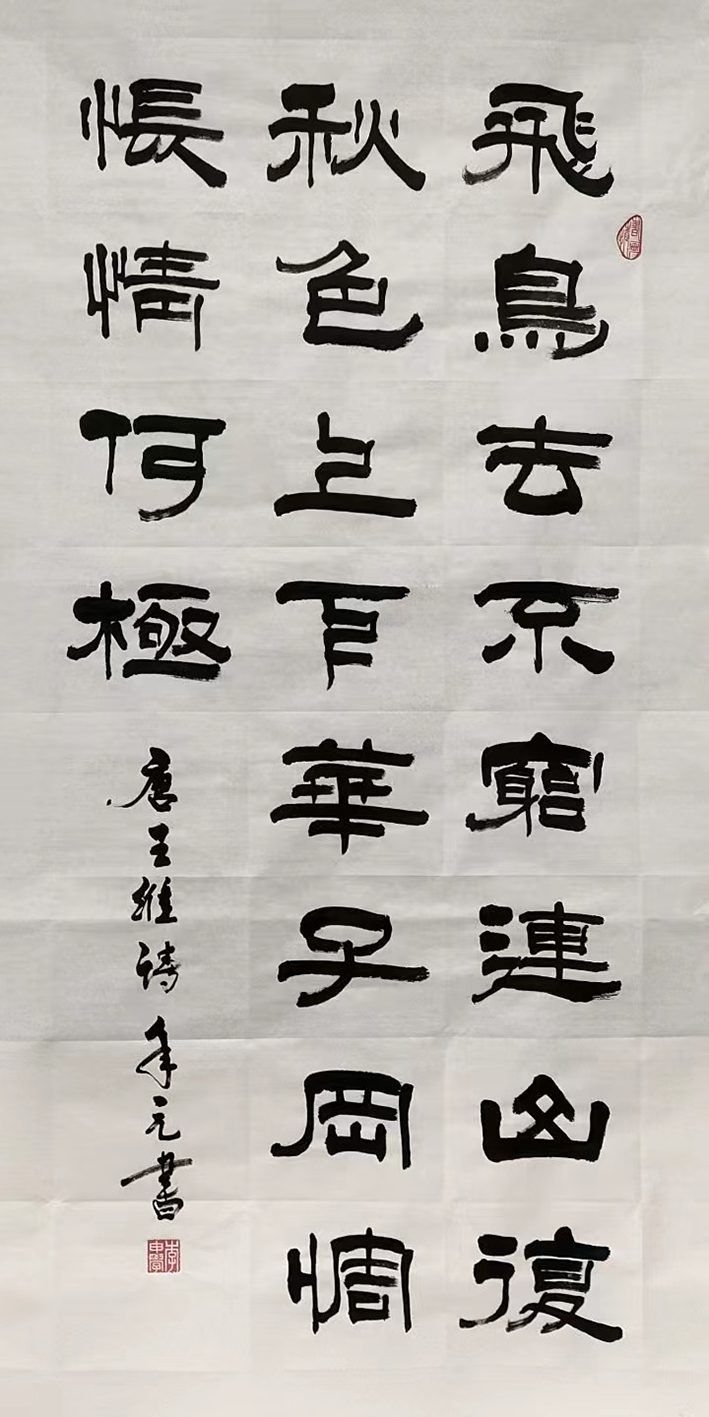 飛鳥去不窮連山復
秋色上下華子岡惆
悵情何極
唐王維詩年元書